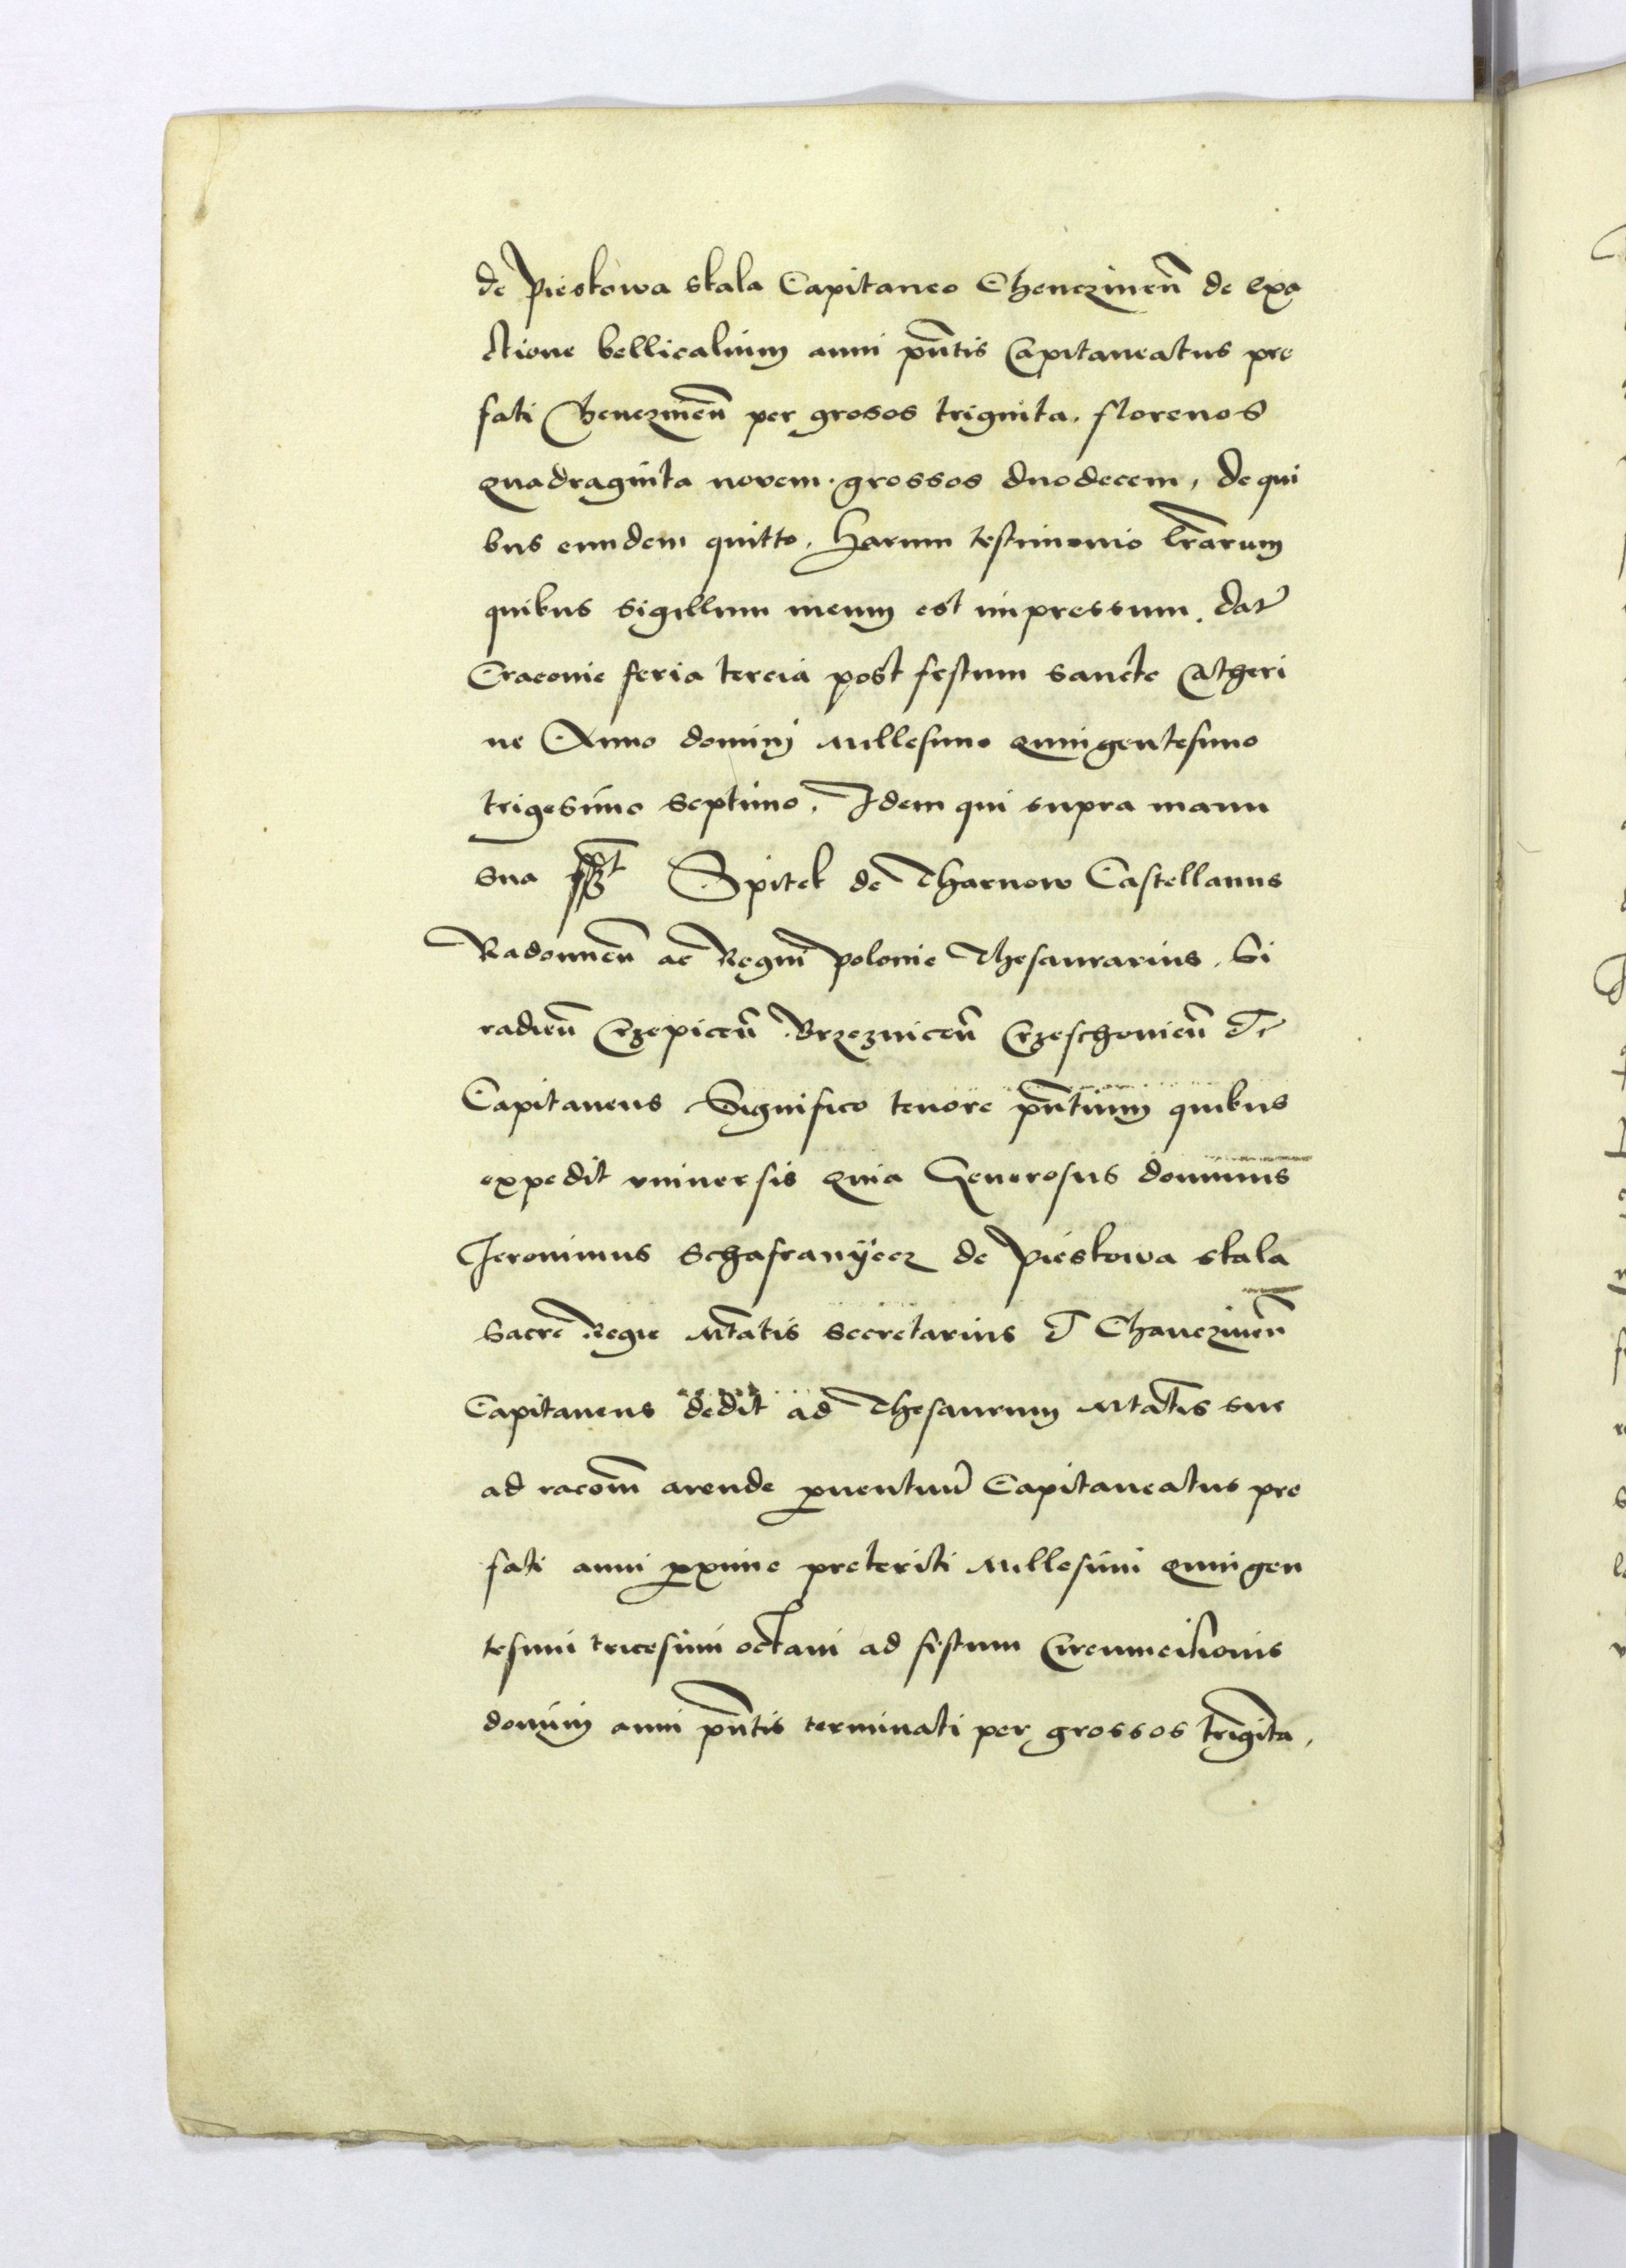 de Pieskowa skala Capitaneo Chenczinen̄ de exa
ctione bellicalium anni pn̄tis Capitaneatus pre
fati Chenczinen̄ per grosos triginta. florenos
quadraginta novem. grossos duodecem, de qui
bus eundem quitto. Harum testimonio lr̄arum
quibus sigillum meum est impressum. dat̄
Cracovie feria tercia post festum sancte Catheri
ne Anno domini Millesimo quingentesimo
trigesimo septimo. Idem qui supra manu
sua Spitek de Tharnow Castellanus
Radomien̄ ac Regni polonie Thesaurarius. Si
radien̄ Crzepicen̄ Brzeznicen̄ Crzeschovien̄ Et
Capitaneus Significo tenore pn̄tium quibus
expedit vniuersis quia Generosus dominus
Jeronimus Schafranyecz de Pieskowa skala
Sacre Regie Mtatis secretarius et Chanczinen̄
Capitaneus dedit ad Thesaurum Mtatis sue
ad racōm arende ꝓuentuū Capitaneatus pre
fati anni ꝓxime preteriti Millesimi quingen
tesimi tricesimi octavi ad festum Circumcisionis
domini anni pn̄tis terminati per grossos triginta,